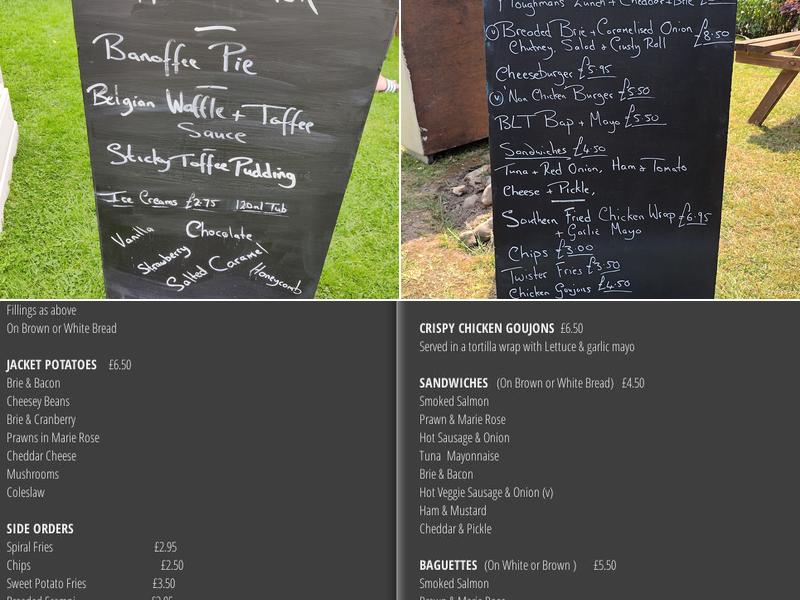 Banoffee Pie
Belgian Waffle + Toffee
Sauce
Sticky Toffee Pudding
Ice Creams £2.75 120ml Tub
Vanilla Chocolate
Strawberry
Salted Caramel
Honeycomb
Ploughmans Lunch + Cheddar + Brie
(V) Breaded Brie + Caramelised Onion £8.50
Chutney, Salad + Crusty Roll
Cheeseburger £5.95
(V) 'Non Chicken Burger £5.50
BLT Bap + Mayo £5.50
Sandwiches £4.50
Tuna + Red Onion, Ham + Tomato
Cheese + Pickle,
Southern Fried Chicken Wrap £6.95
+ Garlic Mayo
Chips £3.00
Twister Fries £3.50
Chicken Goujons £4.50
Fillings as above
On Brown or White Bread
JACKET POTATOES £6.50
Brie & Bacon
Cheesey Beans
Brie & Cranberry
Prawns in Marie Rose
Cheddar Cheese
Mushrooms
Coleslaw
SIDE ORDERS
Spiral Fries £2.95
Chips £2.50
Sweet Potato Fries £3.50
CRISPY CHICKEN GOUJONS £6.50
Served in a tortilla wrap with Lettuce & garlic mayo
SANDWICHES (On Brown or White Bread) £4.50
Smoked Salmon
Prawn & Marie Rose
Hot Sausage & Onion
Tuna Mayonnaise
Brie & Bacon
Hot Veggie Sausage & Onion (v)
Ham & Mustard
Cheddar & Pickle
BAGUETTES (On White or Brown ) £5.50
Smoked Salmon